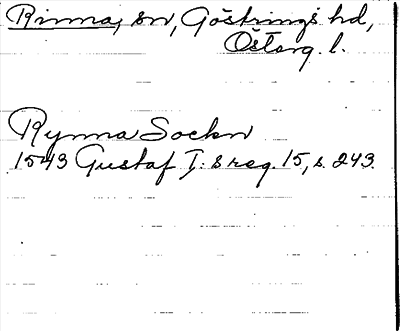 Rinna, sn, Göstrings hd,
Österg. l.
Rymna Sockn
1543 Gustaf I:s reg. 15, s. 243.